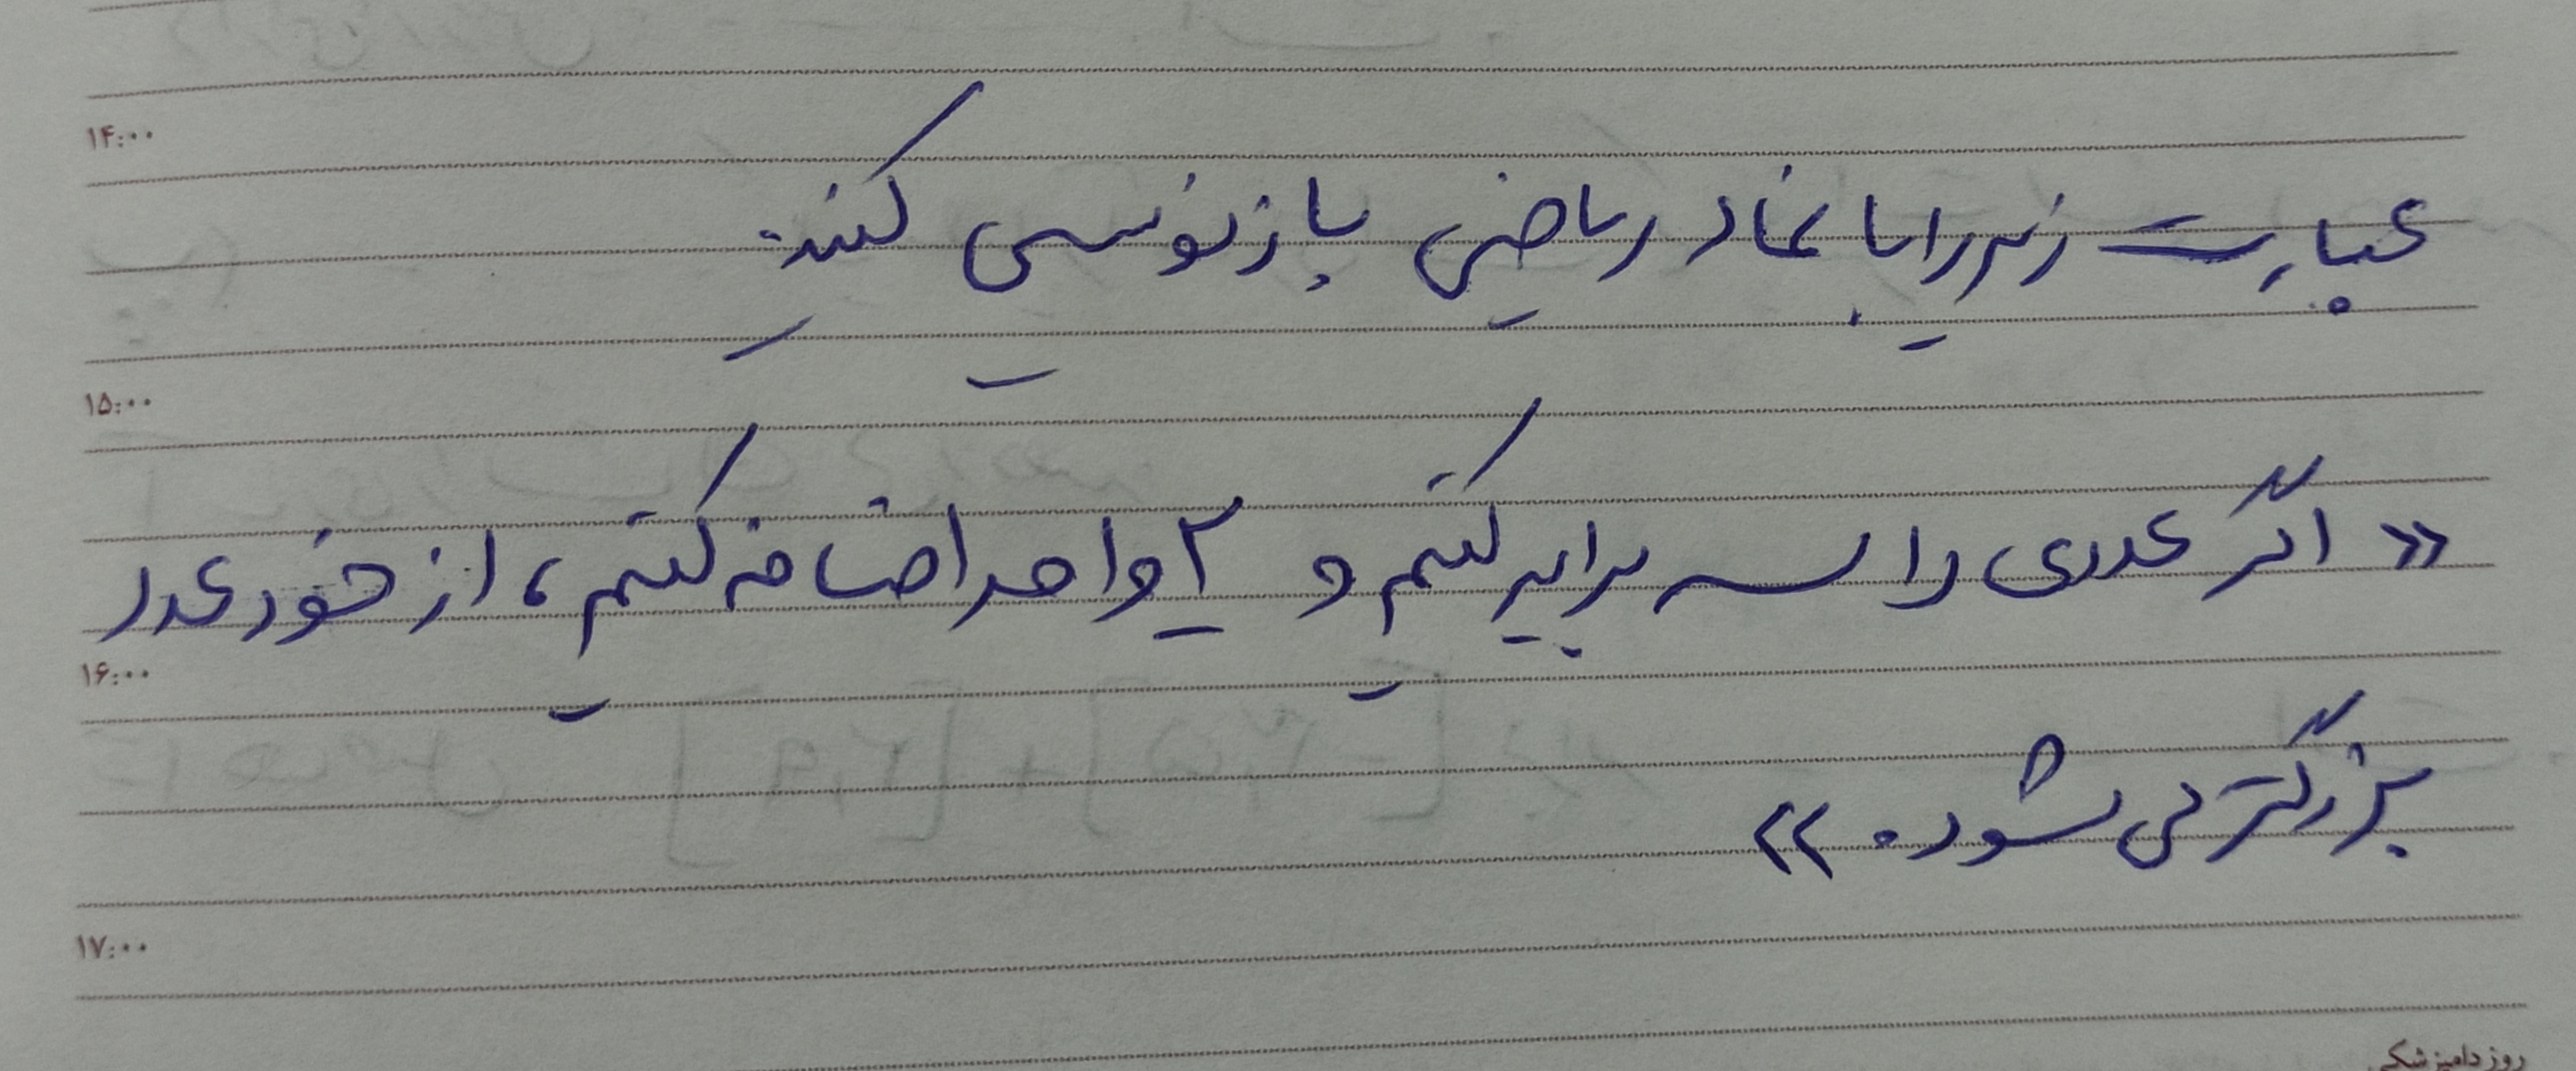 ۱۴:۰۰
عبارت زیر را با نماد ریاضی بازنویسی کنید.
۱۵:۰۰
« اگر عددی را سه برابر کنیم و ۲ واحد اضافه کنیم، از خود عدد
۱۶:۰۰
بزرگتر می شود. »
۱۷:۰۰
روز دامپزشکی